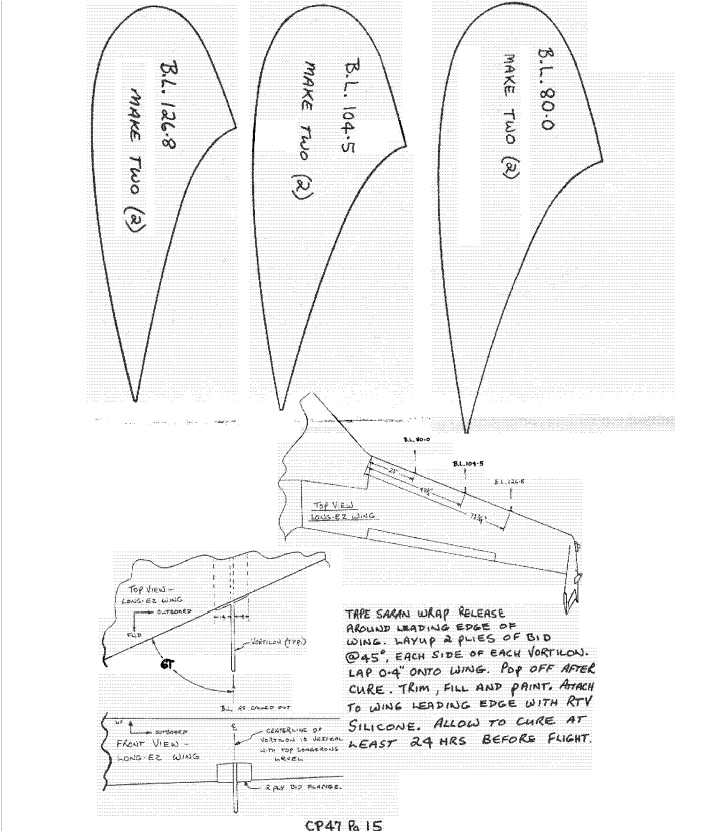 B.L. 126.8
MAKE TWO (2)
B.L. 104.5
MAKE TWO (2)
B.L. 80.0
MAKE TWO (2)
B.L. 80.0
B.L. 104.5
B.L. 126.8
TOP VIEW
LONG-EZ WING
TOP VIEW –
LONG-EZ WING
OUTBOARD
FWD
VORTILON (TYP.)
B.L. AS CALLED OUT
UP
OUTBOARD
FRONT VIEW –
LONG-EZ WING
CENTERLINE OF
VORTILON IS VERTICAL
WITH TOP LONGERONS
LEVEL
2 PLY BID FLANGE.
TAPE SARAN WRAP RELEASE
AROUND LEADING EDGE OF
WING. LAYUP 2 PLIES OF BID
@45°, EACH SIDE OF EACH VORTILON.
LAP 0.4" ONTO WING. POP OFF AFTER
CURE. TRIM, FILL AND PAINT. ATTACH
TO WING LEADING EDGE WITH RTV
SILICONE. ALLOW TO CURE AT
LEAST 24 HRS BEFORE FLIGHT.
CP47 Pg 15